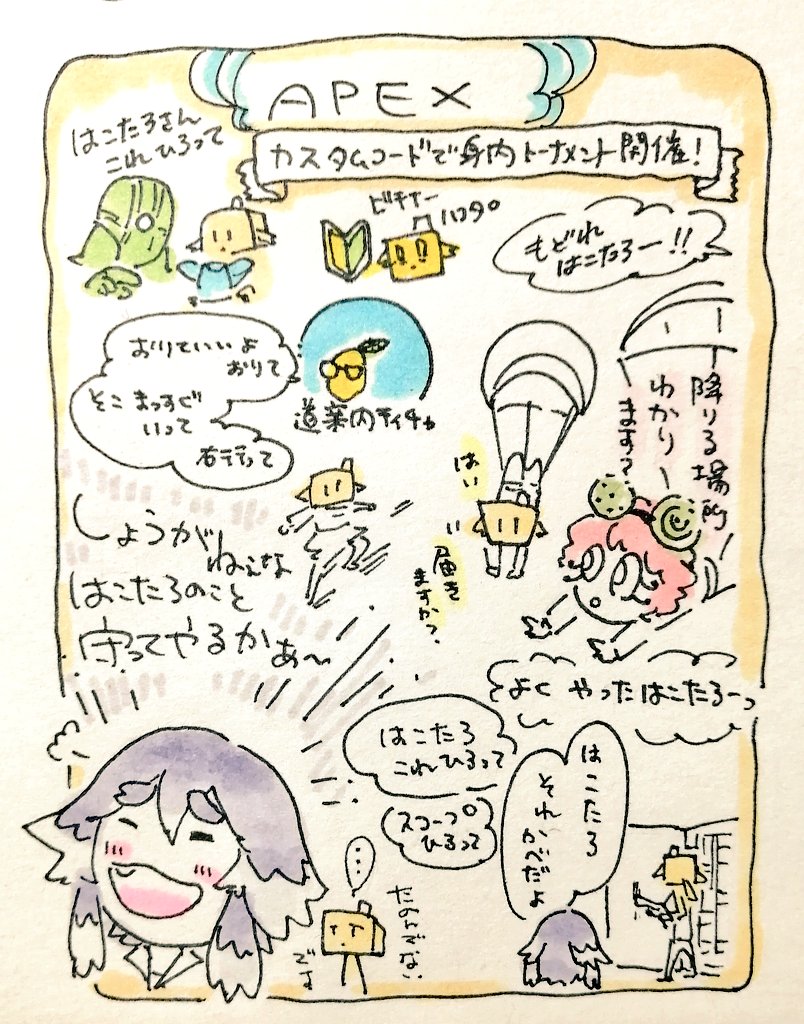 APEX
カスタムコードで身内トーナメント開催!
はこたろさん
これひろって
ビギナー
ハコタロ
もどれ
はこたろー!!
おりていいよ
おりて
そこ まっすぐ
いって
右行って
道案内ティチャ
降りる場所
わかりー
ます?
はい
届き
ますか?
しょうが
ねぇな
はこたろのこと
守ってやるかぁ〜
よく やった はこたろーっ
はこたろ
これひろって
スコープ
ひろって
はこたろ
それ かべだよ
...
たのんでない
です